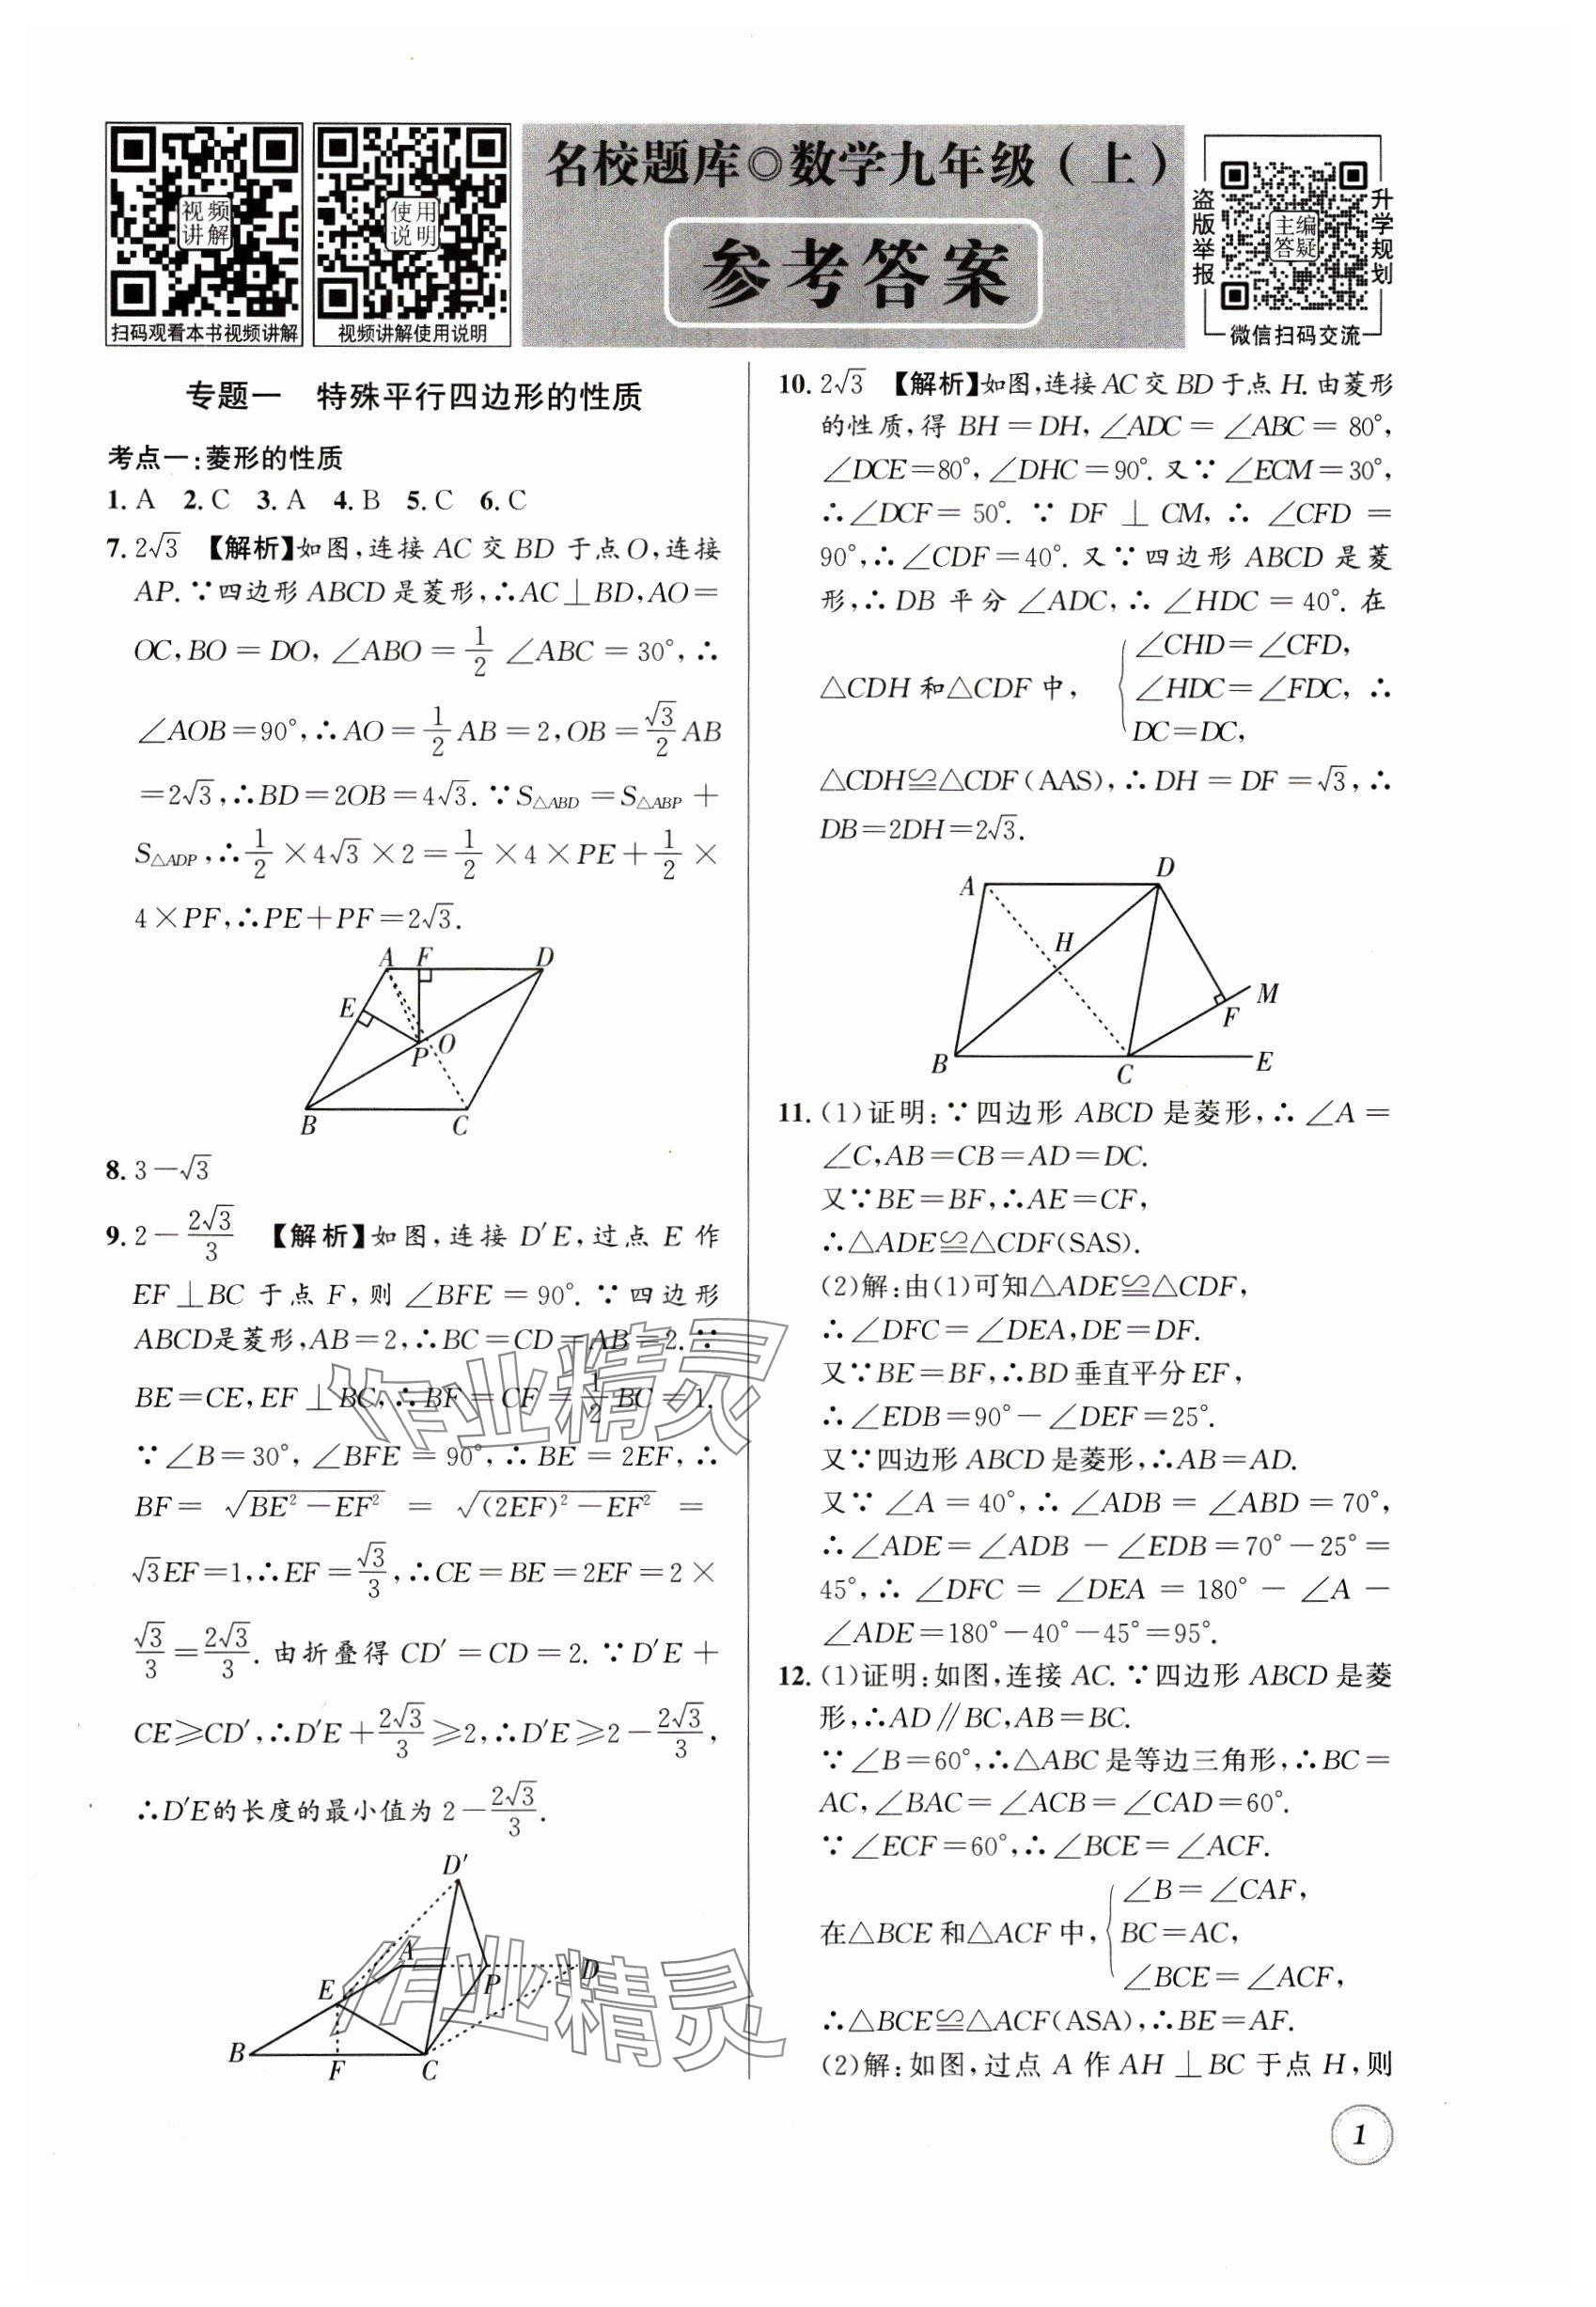 视频
讲解
扫码观看本书视频讲解
使用
说明
视频讲解使用说明
名校题库◎数学九年级（上）
参考答案
盗版举报
主编
答疑
升学规划
微信扫码交流
专题一　特殊平行四边形的性质
考点一:菱形的性质
1. A 2. C 3. A 4. B 5. C 6. C
7. 2√3 【解析】如图,连接 AC 交 BD 于点 O,连接
AP. ∵四边形 ABCD 是菱形,∴AC⊥BD,AO=
OC,BO=DO,∠ABO=1/2∠ABC=30°,∴
∠AOB=90°,∴AO=1/2AB=2,OB=√3/2AB
=2√3,∴BD=2OB=4√3. ∵S△ABD=S△ABP+
S△ADP,∴1/2×4√3×2=1/2×4×PE+1/2×
4×PF,∴PE+PF=2√3.
A F D
E
P O
B C
8. 3-√3
9. 2-2√3/3 【解析】如图,连接 D′E,过点 E 作
EF⊥BC 于点 F,则∠BFE=90°. ∵四边形
ABCD是菱形,AB=2,∴BC=CD=AB=2. ∵
BE=CE,EF⊥BC,∴BF=CF=1/2BC=1.
∵∠B=30°,∠BFE=90°,∴BE=2EF,∴
BF=√(BE²-EF²)=√((2EF)²-EF²)=
√3EF=1,∴EF=√3/3,∴CE=BE=2EF=2×
√3/3=2√3/3. 由折叠得 CD′=CD=2. ∵D′E+
CE≥CD′,∴D′E+2√3/3≥2,∴D′E≥2-2√3/3,
∴D′E的长度的最小值为 2-2√3/3.
D′
A
P
D
E
B F C
10. 2√3 【解析】如图,连接 AC 交 BD 于点 H. 由菱形
的性质,得 BH=DH,∠ADC=∠ABC=80°,
∠DCE=80°,∠DHC=90°. 又∵∠ECM=30°,
∴∠DCF=50°. ∵DF⊥CM,∴∠CFD=
90°,∴∠CDF=40°. 又∵四边形 ABCD 是菱
形,∴DB 平分∠ADC,∴∠HDC=40°. 在
∠CHD=∠CFD,
△CDH 和△CDF 中, ∠HDC=∠FDC, ∴
DC=DC,
△CDH≌△CDF(AAS),∴DH=DF=√3,∴
DB=2DH=2√3.
A D
H
M
F
B C E
11. (1)证明:∵四边形 ABCD 是菱形,∴∠A=
∠C,AB=CB=AD=DC.
又∵BE=BF,∴AE=CF,
∴△ADE≌△CDF(SAS).
(2)解:由(1)可知△ADE≌△CDF,
∴∠DFC=∠DEA,DE=DF.
又∵BE=BF,∴BD 垂直平分 EF,
∴∠EDB=90°-∠DEF=25°.
又∵四边形 ABCD 是菱形,∴AB=AD.
又∵∠A=40°,∴∠ADB=∠ABD=70°,
∴∠ADE=∠ADB-∠EDB=70°-25°=
45°,∴∠DFC=∠DEA=180°-∠A-
∠ADE=180°-40°-45°=95°.
12. (1)证明:如图,连接 AC. ∵四边形 ABCD 是菱
形,∴AD∥BC,AB=BC.
∵∠B=60°,∴△ABC 是等边三角形,∴BC=
AC,∠BAC=∠ACB=∠CAD=60°.
∵∠ECF=60°,∴∠BCE=∠ACF.
∠B=∠CAF,
在△BCE 和△ACF 中, BC=AC,
∠BCE=∠ACF,
∴△BCE≌△ACF(ASA),∴BE=AF.
(2)解:如图,过点 A 作 AH⊥BC 于点 H,则
作业精灵
作业精灵
1